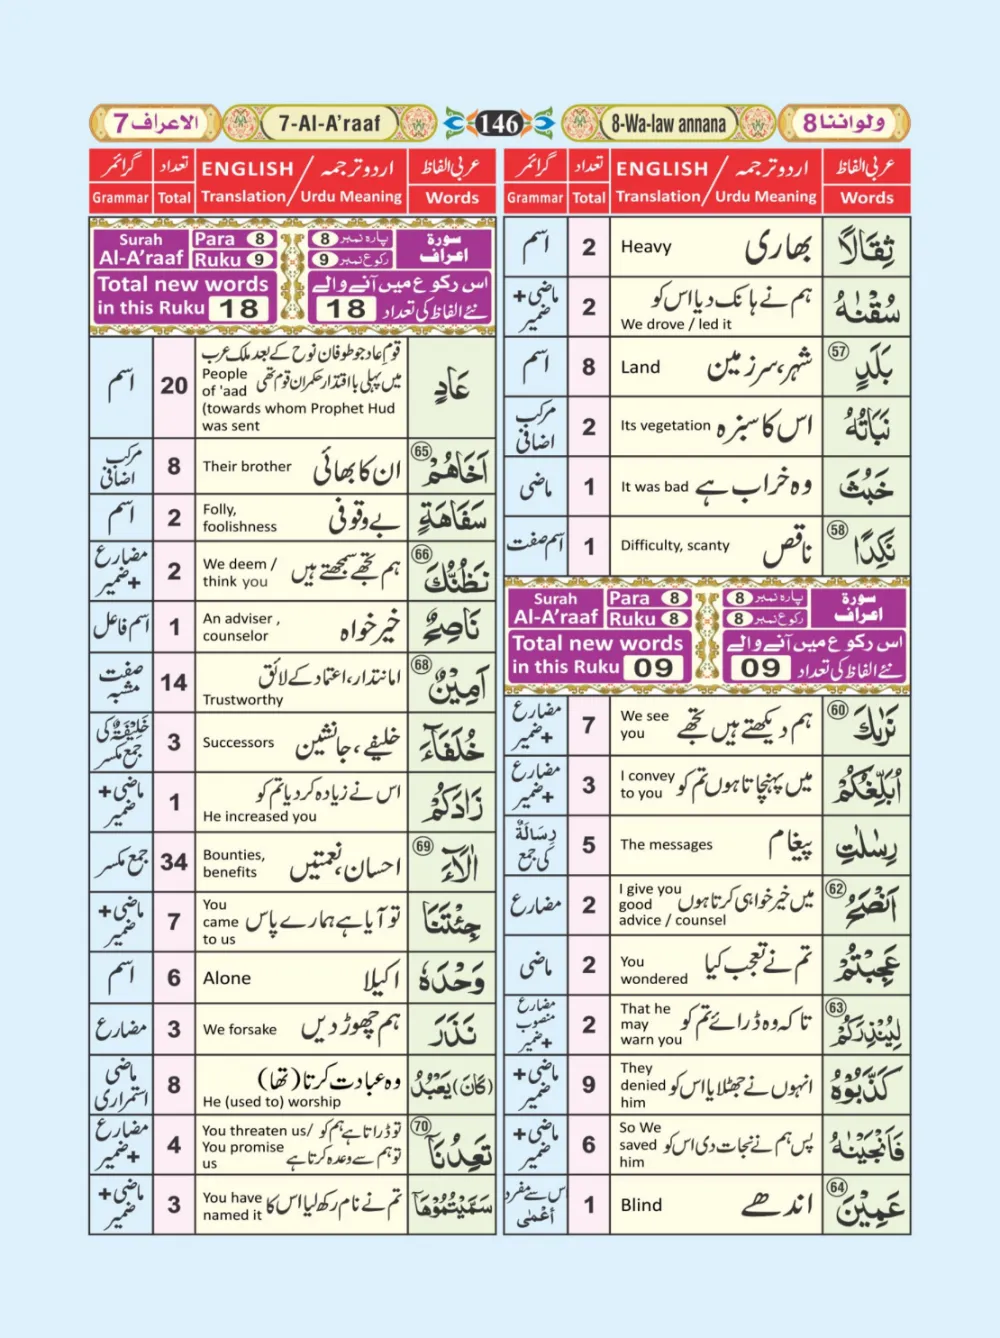 ولو اننا 8
8-Wa-law annana
146
7-Al-A'raaf
الاعراف 7
عربی الفاظ
اردو ترجمہ / ENGLISH
تعداد
گرائمر
Words
Translation / Urdu Meaning
Total
Grammar
ثِقَالًا بھاری Heavy 2 اسم
سُقْنٰهُ ہم نے ہانک دیا اس کو We drove / led it 2 ماضی + ضمیر
57 بَلَدٍ شہر، سرزمین Land 8 اسم
نَبَاتُهٗ اس کا سبزہ Its vegetation 2 مرکب اضافی
خَبُثَ وہ خراب ہے It was bad 1 ماضی
58 نَكِدًا ناقص Difficulty, scanty 1 اسم صفت
سورۃ اعراف پارہ نمبر 8 Para 8 Surah Al-A'raaf
رکوع نمبر 8 Ruku 8
اس رکوع میں آنے والے Total new words
نئے الفاظ کی تعداد 09 in this Ruku 09
60 نَرٰىكَ ہم دیکھتے ہیں تجھے We see you 7 مضارع + ضمیر
اُبَلِّغُكُمْ میں پہنچاتا ہوں تم کو I convey to you 3 مضارع + ضمیر
رِسٰلٰتِ پیغام The messages 5 رِسَالَةٌ کی جمع
62 اَنْصَحُ میں خیر خواہی کرتا ہوں I give you good advice / counsel 2 مضارع
عَجِبْتُمْ تم نے تعجب کیا You wondered 2 ماضی
63 لِيُنْذِرَكُمْ تاکہ وہ ڈرائے تم کو That he may warn you 2 مضارع منصوب + ضمیر
كَذَّبُوْهُ انہوں نے جھٹلایا اس کو They denied him 9 ماضی + ضمیر
فَاَنْجَيْنٰهُ پس ہم نے نجات دی اس کو So We saved him 6 ماضی + ضمیر
64 عَمِيْنَ اندھے Blind 1 اس سے مفرد أَعْمٰى
عربی الفاظ
اردو ترجمہ / ENGLISH
تعداد
گرائمر
Words
Translation / Urdu Meaning
Total
Grammar
سورۃ اعراف پارہ نمبر 8 Para 8 Surah Al-A'raaf
رکوع نمبر 9 Ruku 9
اس رکوع میں آنے والے Total new words
نئے الفاظ کی تعداد 18 in this Ruku 18
عَادٍ قوم عاد جو طوفان نوح کے بعد ملک عرب میں پہلی بااقتدار حکمران قوم تھی People of 'aad (towards whom Prophet Hud was sent 20 اسم
65 اَخَاهُمْ ان کا بھائی Their brother 8 مرکب اضافی
سَفَاهَةٍ بے وقوفی Folly, foolishness 2 اسم
66 نَظُنُّكَ ہم تجھے سمجھتے ہیں We deem / think you 2 مضارع + ضمیر
نَاصِحٌ خیر خواہ An adviser , counselor 1 اسم فاعل
68 اَمِيْنٌ امانتدار، اعتماد کے لائق Trustworthy 14 صفت مشبہ
خُلَفَآءَ خلیفے، جانشین Successors 3 خَلِيْفَةٌ کی جمع مکسر
زَادَكُمْ اس نے زیادہ کر دیا تم کو He increased you 1 ماضی + ضمیر
69 اٰلَآءَ احسان، نعمتیں Bounties, benefits 34 جمع مکسر
جِئْتَنَا تو آیا ہے ہمارے پاس You came to us 7 ماضی + ضمیر
وَحْدَهٗ اکیلا Alone 6 اسم
نَذَرَ ہم چھوڑ دیں We forsake 3 مضارع
(كَانَ) يَعْبُدُ وہ عبادت کرتا (تھا) He (used to) worship 8 ماضی استمراری
70 تَعِدُنَآ تو ڈراتا ہے ہم کو / تو ہم سے وعدہ کرتا ہے You threaten us/ You promise us 4 مضارع + ضمیر
سَمَّيْتُمُوْهَآ تم نے نام رکھ لیا اس کا You have named it 3 ماضی + ضمیر